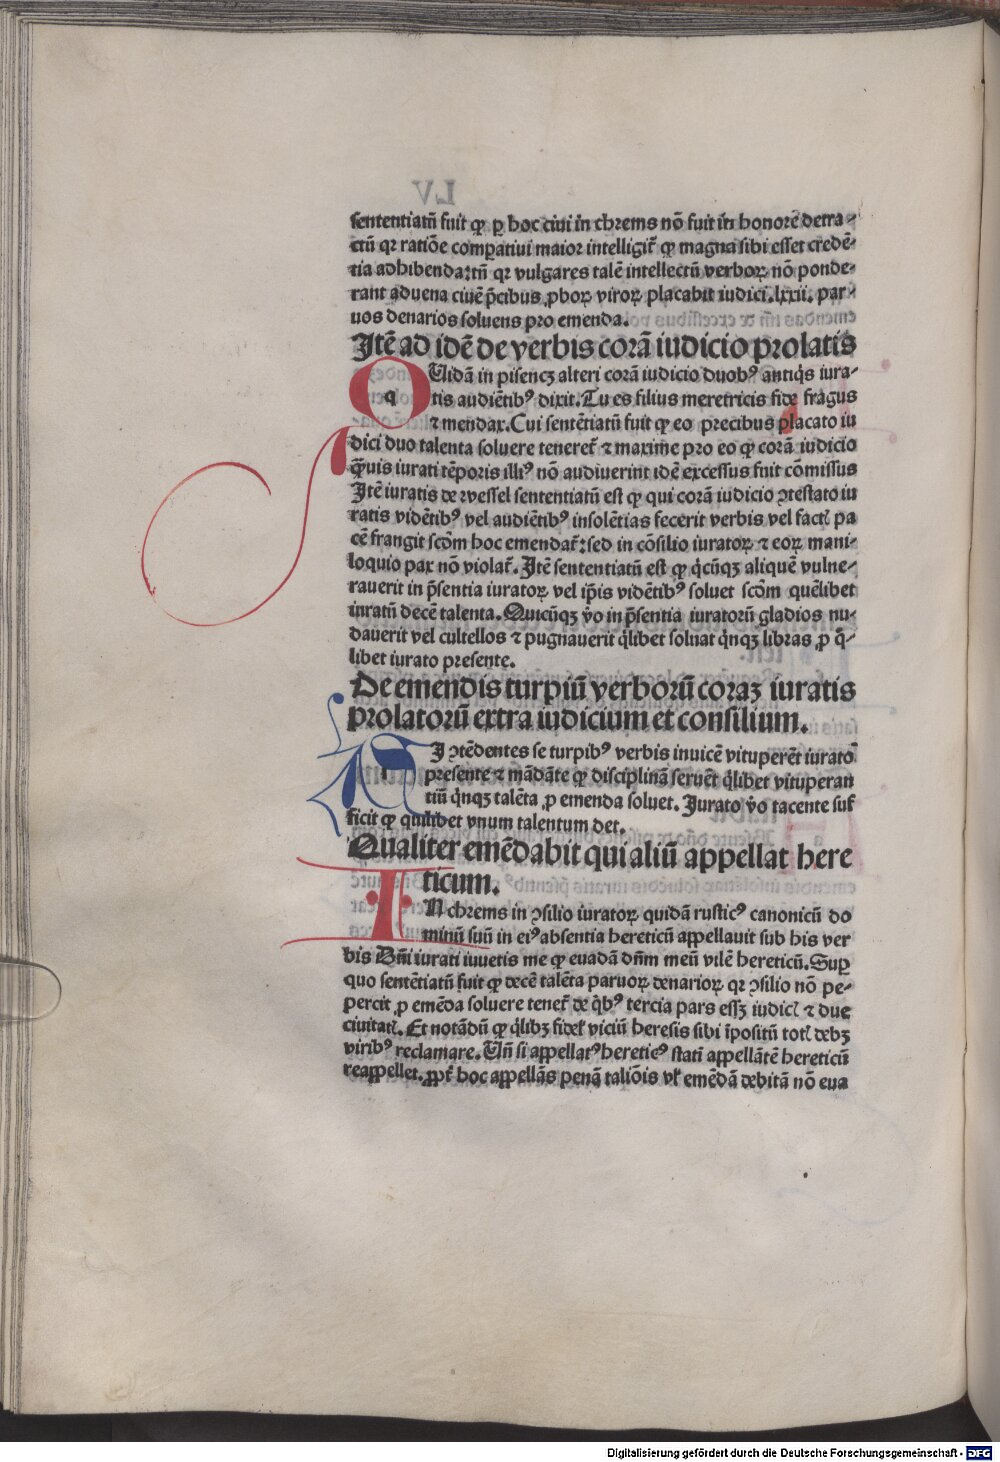 sententiatū fuit ꝙ ꝑ hoc ciui in chrems nō fuit in honorē detra⸗
ctū qꝛ ratiōe comꝑatiui maior intelligit̄ ꝙ magna sibi esset credē⸗
tia adhibenda: tn̄ qꝛ vulgares talē intellectū verboꝝ nō ponde⸗
rant aduena ciuē p̄cibus ꝓboꝝ viroꝝ placabit iudici. lxxii. par⸗
uos denarios soluens pro emenda.
Itē ad idē de verbis corā iudicio prolatis
QUidā in pisencꝫ alteri corā iudicio duobꝰ antiq̄s iura⸗
tis audiētibꝰ dixit. Tu es filius meretricis fide fragus
⁊ mendax. Cui sentētiatū fuit ꝙ eo precibus placato iu
dici duo talenta soluere teneret̄ ⁊ maxime pro eo ꝙ corā iudicio
q̄uis iurati tēporis illiꝰ nō audiuerint idē excessus fuit cōmissus
Itē iuratis de rvessel sententiatū est ꝙ qui corā iudicio ꝯtestato iu
ratis vidētibꝰ vel audiētibꝰ insolētias fecerit verbis vel factꝭ pa
cē frangit scd̄m hoc emendat̄: sed in cōsilio iuratoꝝ ⁊ eoꝝ mani⸗
loquio pax nō violat̄. Itē sententiatū est ꝙ q̄cūqꝫ aliquē vulne⸗
rauerit in p̄sentia iuratoꝝ vel ip̄is vidētibꝰ soluet scd̄m quēlibet
iuratū decē talenta. Quicūqꝫ v̄o in p̄sentia iuratorū gladios nu⸗
dauerit vel cultellos ⁊ pugnauerit q̄libet soluat q̄nqꝫ libras ꝓ q̄⸗
libet iurato presente.
De emendis turpiū verborū coraꝫ iuratis
prolatorū extra iudicium et consilium.
SI ꝯtēdentes se turpibꝰ verbis inuicē vituperēt iurato
presente ⁊ mādāte ꝙ disciplinā seruēt q̄libet vituperan
tiū q̄nqꝫ talēta ꝓ emenda soluet. Jurato v̄o tacente suf
ficit ꝙ quilibet vnum talentum det.
Qualiter emēdabit qui aliū appellat here
ticum.
IN chrems in ꝯsilio iuratoꝝ quidā rusticꝰ canonicū do
minū suū in eiꝰ absentia hereticū appellauit sub his ver
bis Dn̄i iurati iuuetis me ꝙ euadā dn̄m meū vilē hereticū. Suꝑ
quo sentētiatū fuit ꝙ decē talēta paruoꝝ denarioꝝ qꝛ ꝯsilio nō pe⸗
percit ꝓ emēda soluere tenet̄ de q̄bꝰ tercia pars essꝫ iudicꝭ ⁊ due
ciuitatꝭ. Et notādū ꝙ q̄libꝫ fidelꝭ viciū heresis sibi īpositū totꝭ debꝫ
viribꝰ reclamare. Un̄ si appellatꝰ hereticꝰ statī appellātē hereticū
reappellet. ꝓpt̄ hoc appellās penā taliōis vl̓ emēdā debitā nō eua
Digitalisierung gefördert durch die Deutsche Forschungsgemeinschaft - DFG